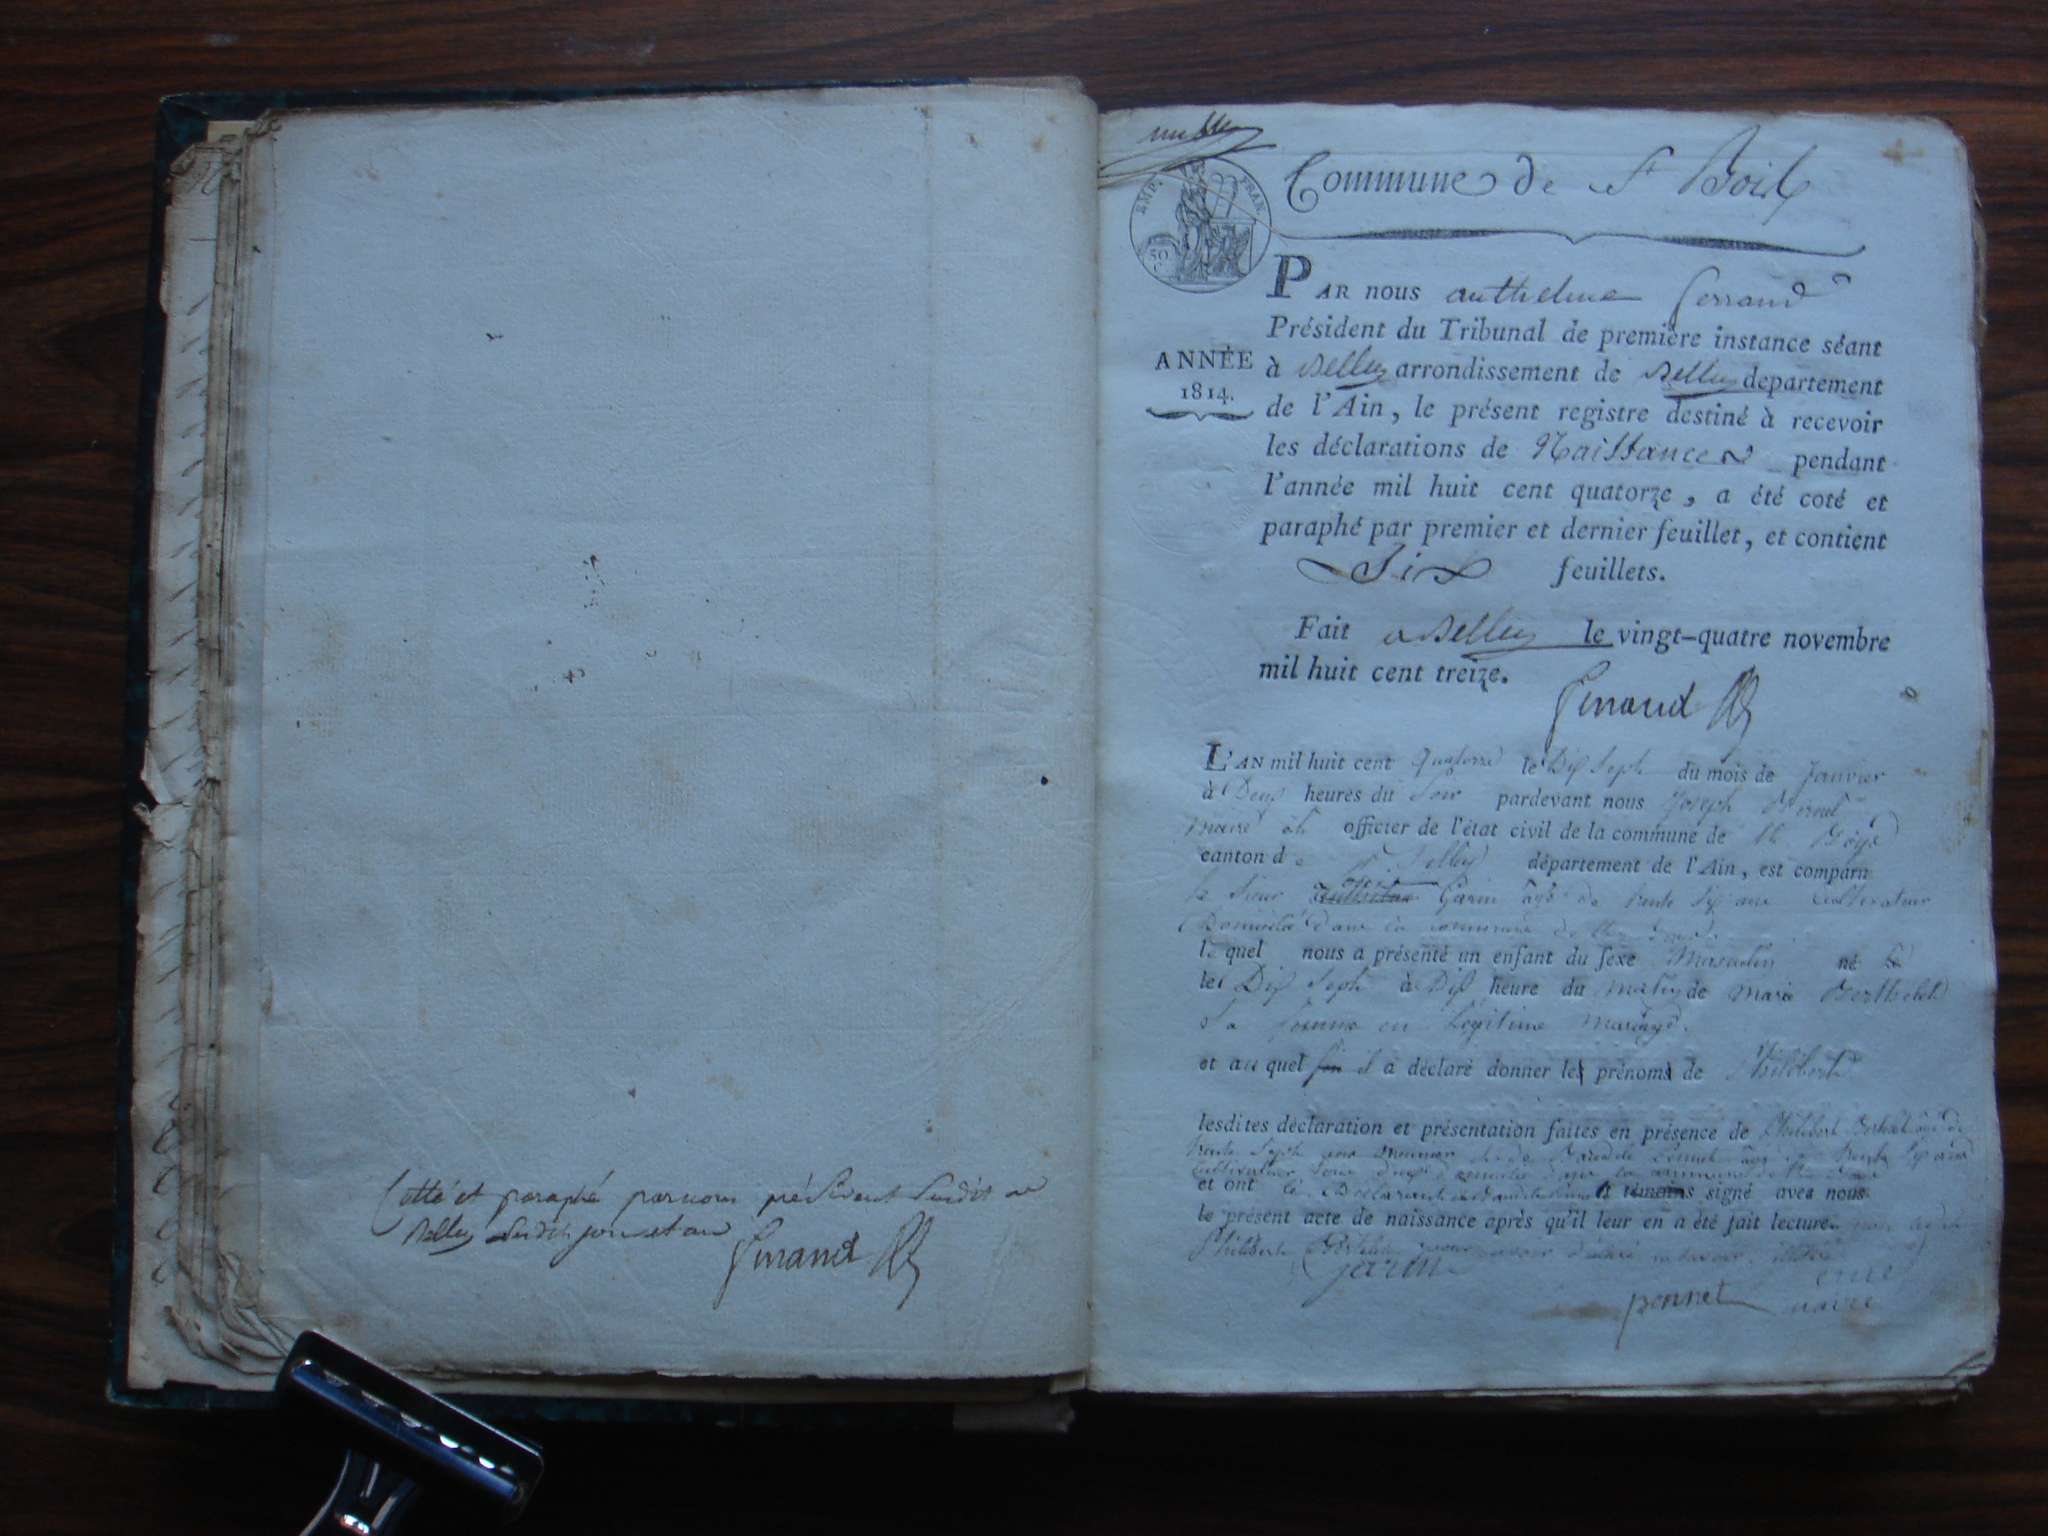 Cotté et paraphé par nous président susdit a
Belley lesdits jour et an
EMP. FRAN.
50
C
Commune de St Boil
PAR nous anthelme ferrand
Président du Tribunal de première instance séant
ANNÉE
1814.
à Belley arrondissement de Belley département
de l'Ain, le présent registre destiné à recevoir
les déclarations de Naissances pendant
l'année mil huit cent quatorze, a été coté et
paraphé par premier et dernier feuillet, et contient
Six feuillets.
Fait a Belley le vingt-quatre novembre
mil huit cent treize.
L'AN mil huit cent quatorze le Dix Sept du mois de Janvier
à Deux heures du Soir pardevant nous Joseph
maire officier de l'état civil de la commune de
canton de Belley département de l'Ain, est comparu
le Sieur Garin agé de trente Six ans Cultivateur
Domicilié dans la commune de
le quel nous a présenté un enfant du sexe Masculin né
le Dix Sept à Dix heure du matin de Marie Berthelet
Sa femme en légitime mariage.
et au quel il a déclaré donner les prénoms de Philibert
lesdites déclaration et présentation faites en présence de Philibert agé de
trente Sept ans agé de trente
cultivateur domicilié dans la commune de
et ont témoins signé avec nous
le présent acte de naissance après qu'il leur en a été fait lecture. non
Philibert pour avoir déclaré
garin
ponnet